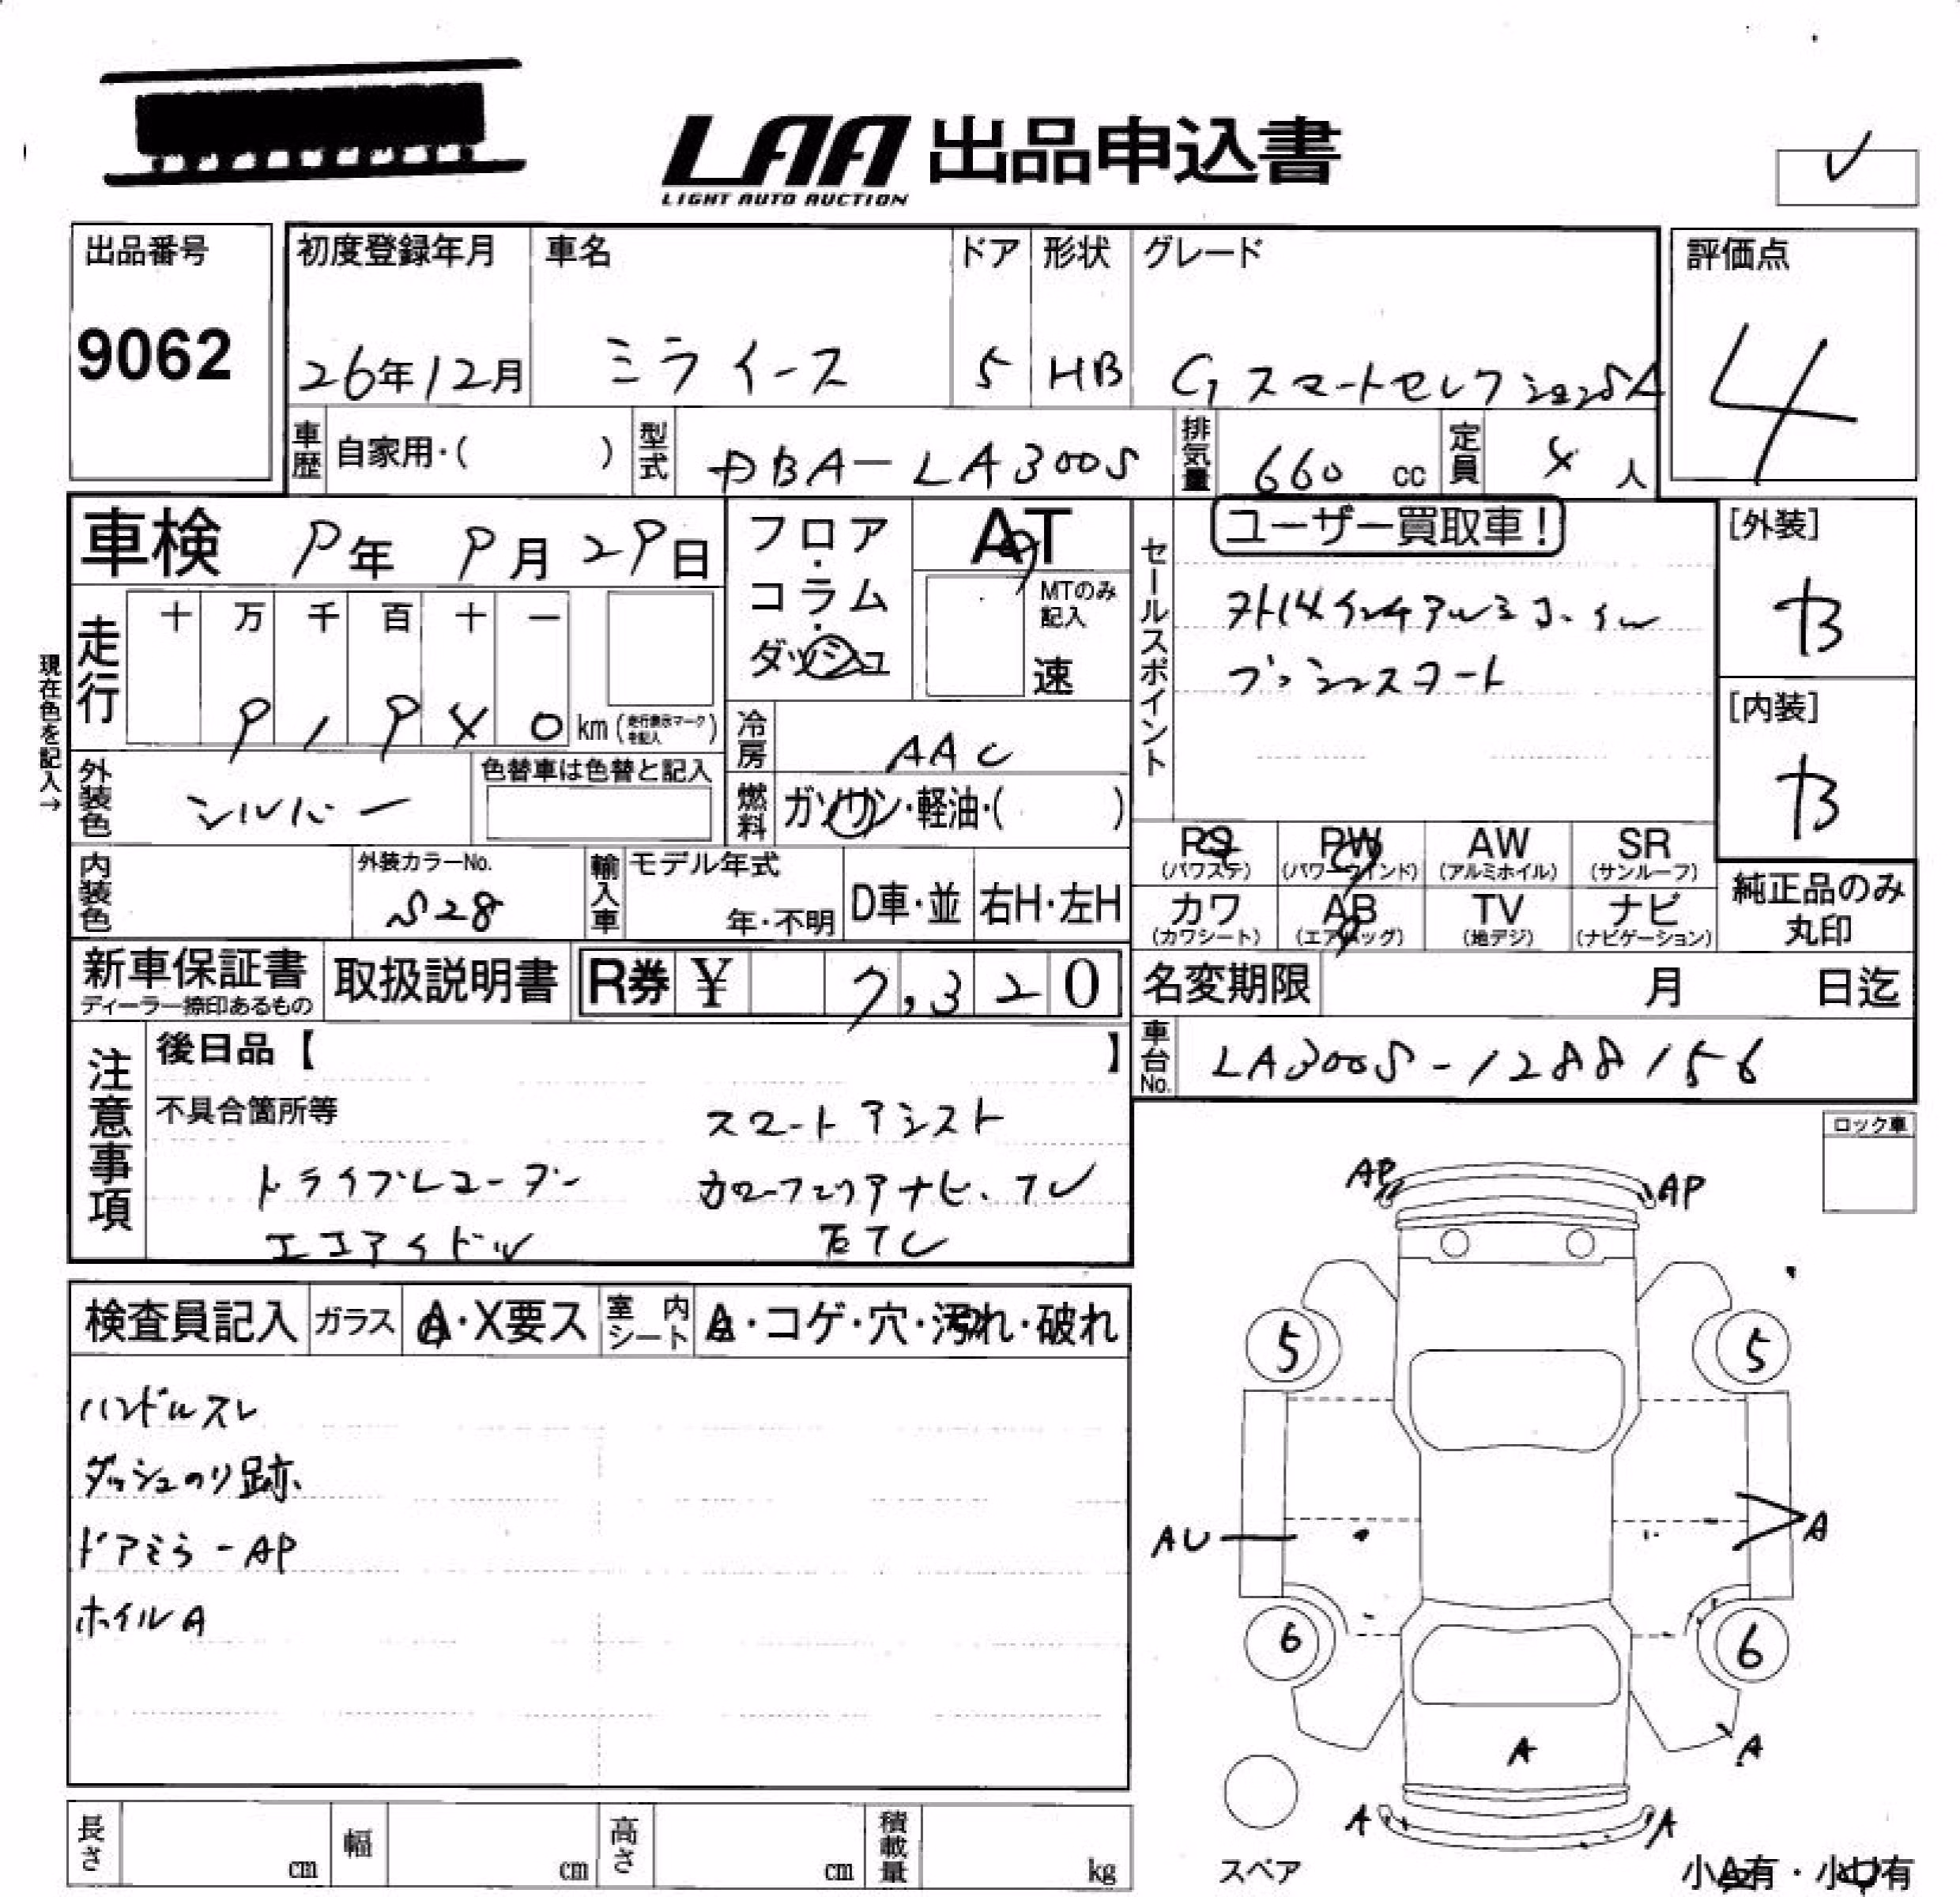 LAA 出品申込書
LIGHT AUTO AUCTION
出品番号
9062
初度登録年月
26年12月
車名
ミライース
ドア
5
形状
HB
グレード
G スマートセレクションSA
評価点
4
車歴 自家用・( )
型式 DBA-LA300S
排気量 660 cc
定員 4 人
車検 9年 9月 29日
フロア・コラム・ダッシュ
AT
MTのみ記入
速
セールスポイント
ユーザー買取車!
プッシュスタート
[外装]
B
[内装]
B
現在色を記入→
走行
十 万 千 百 十 一
9 1 9 4 0 km (走行表示マークを記入)
冷房 AAC
外装色 シルバー
色替車は色替と記入
燃料 ガソリン・軽油・( )
PS (パワステ)
PW (パワーウインド)
AW (アルミホイル)
SR (サンルーフ)
カワ (カワシート)
AB (エアバッグ)
TV (地デジ)
ナビ (ナビゲーション)
純正品のみ丸印
内装色
外装カラーNo.
S28
輸入車
モデル年式
年・不明
D車・並
右H・左H
新車保証書
ディーラー捺印あるもの
取扱説明書
R券 ¥ 7,320
名変期限 月 日迄
車台No. LA300S-1288156
注意事項
後日品【 】
不具合箇所等
スマートアシスト
ドライブレコーダー
ナビ、TV
エコアイドル
ETC
ロック車
検査員記入
ガラス A・X要ス
室内シート A・コゲ・穴・汚れ・破れ
ハンドルスレ
ダッシュのり跡
ドアミラーAP
ホイルA
AP
AP
5
5
AU
A
6
6
A
A
A
A
スペア
小A有・小U有
長さ cm
幅 cm
高さ cm
積載量 kg